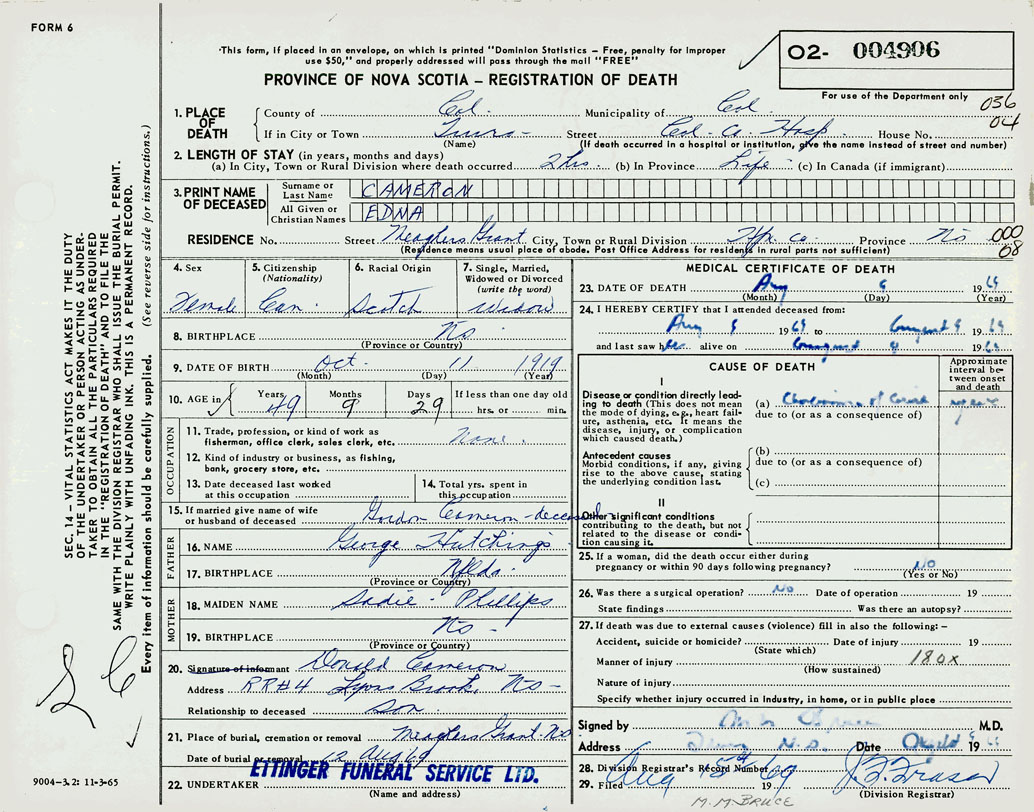 FORM 6
"This form, if placed in an envelope, on which is printed "Dominion Statistics – Free, penalty for improper
use $50," and properly addressed will pass through the mail "FREE"
O2- 004906
PROVINCE OF NOVA SCOTIA – REGISTRATION OF DEATH
For use of the Department only
036
04
SEC. 14 – VITAL STATISTICS ACT MAKES IT THE DUTY
OF THE UNDERTAKER OR PERSON ACTING AS UNDER-
TAKER TO OBTAIN ALL THE PARTICULARS REQUIRED
IN THE "REGISTRATION OF DEATH" AND TO FILE THE
SAME WITH THE DIVISION REGISTRAR WHO SHALL ISSUE THE BURIAL PERMIT.
WRITE PLAINLY WITH UNFADING INK. THIS IS A PERMANENT RECORD.
Every item of information should be carefully supplied. (See reverse side for instructions.)
9004-3.2: 11-3-65
1. PLACE OF DEATH
County of Col. Municipality of Col
If in City or Town Truro - Street Col. Co. Hosp. House No.
(Name) (If death occurred in a hospital or institution, give the name instead of street and number)
2. LENGTH OF STAY (in years, months and days)
(a) In City, Town or Rural Division where death occurred 2 hrs. (b) In Province Life (c) In Canada (if immigrant)
3. PRINT NAME OF DECEASED
Surname or Last Name CAMERON
All Given or Christian Names EDNA
RESIDENCE No. Street City, Town or Rural Division Hfx. Co. Province NS
000
08
(Residence means usual place of abode. Post Office Address for residents in rural parts not sufficient)
4. Sex Female
5. Citizenship (Nationality) Can.
6. Racial Origin Scotch
7. Single, Married, Widowed or Divorced (write the word) Widow
8. BIRTHPLACE NS
(Province or Country)
9. DATE OF BIRTH Oct. 11 1919
(Month) (Day) (Year)
10. AGE in Years 49 Months 9 Days 29 If less than one day old hrs. or min.
OCCUPATION
11. Trade, profession, or kind of work as fisherman, office clerk, sales clerk, etc. None.
12. Kind of industry or business, as fishing, bank, grocery store, etc.
13. Date deceased last worked at this occupation
14. Total yrs. spent in this occupation
15. If married give name of wife or husband of deceased Gordon Cameron - deceased
FATHER
16. NAME George Hutchings
17. BIRTHPLACE Nfld.
(Province or Country)
MOTHER
18. MAIDEN NAME Sadie - Phillips
19. BIRTHPLACE NS -
(Province or Country)
20. Signature of informant Donald Cameron
Address RR#4 Lyons Brook, NS -
Relationship to deceased Son
21. Place of burial, cremation or removal NS
Date of burial or removal 12 Aug/69
22. UNDERTAKER ETTINGER FUNERAL SERVICE LTD.
(Name and address)
MEDICAL CERTIFICATE OF DEATH
23. DATE OF DEATH Aug 9 1969
(Month) (Day) (Year)
24. I HEREBY CERTIFY that I attended deceased from:
Aug 9 1969 to 1969
and last saw her alive on 19
CAUSE OF DEATH
Approximate interval between onset and death
I
Disease or condition directly leading to death (This does not mean the mode of dying, e.g., heart failure, asthenia, etc. It means the disease, injury, or complication which caused death.)
(a)
due to (or as a consequence of)
Antecedent causes
Morbid conditions, if any, giving rise to the above cause, stating the underlying condition last.
(b)
due to (or as a consequence of)
(c)
II
Other significant conditions contributing to the death, but not related to the disease or condition causing it.
25. If a woman, did the death occur either during pregnancy or within 90 days following pregnancy? NO
(Yes or No)
26. Was there a surgical operation? No Date of operation 19
State findings Was there an autopsy?
27. If death was due to external causes (violence) fill in also the following: –
Accident, suicide or homicide? Date of injury 19
(State which)
Manner of injury 180X
(How sustained)
Nature of injury
Specify whether injury occurred in Industry, in home, or in public place
Signed by M.D.
Address Date 19
28. Division Registrar's Record Number
29. Filed Aug 19 69
(Division Registrar)
M. M. BRUCE